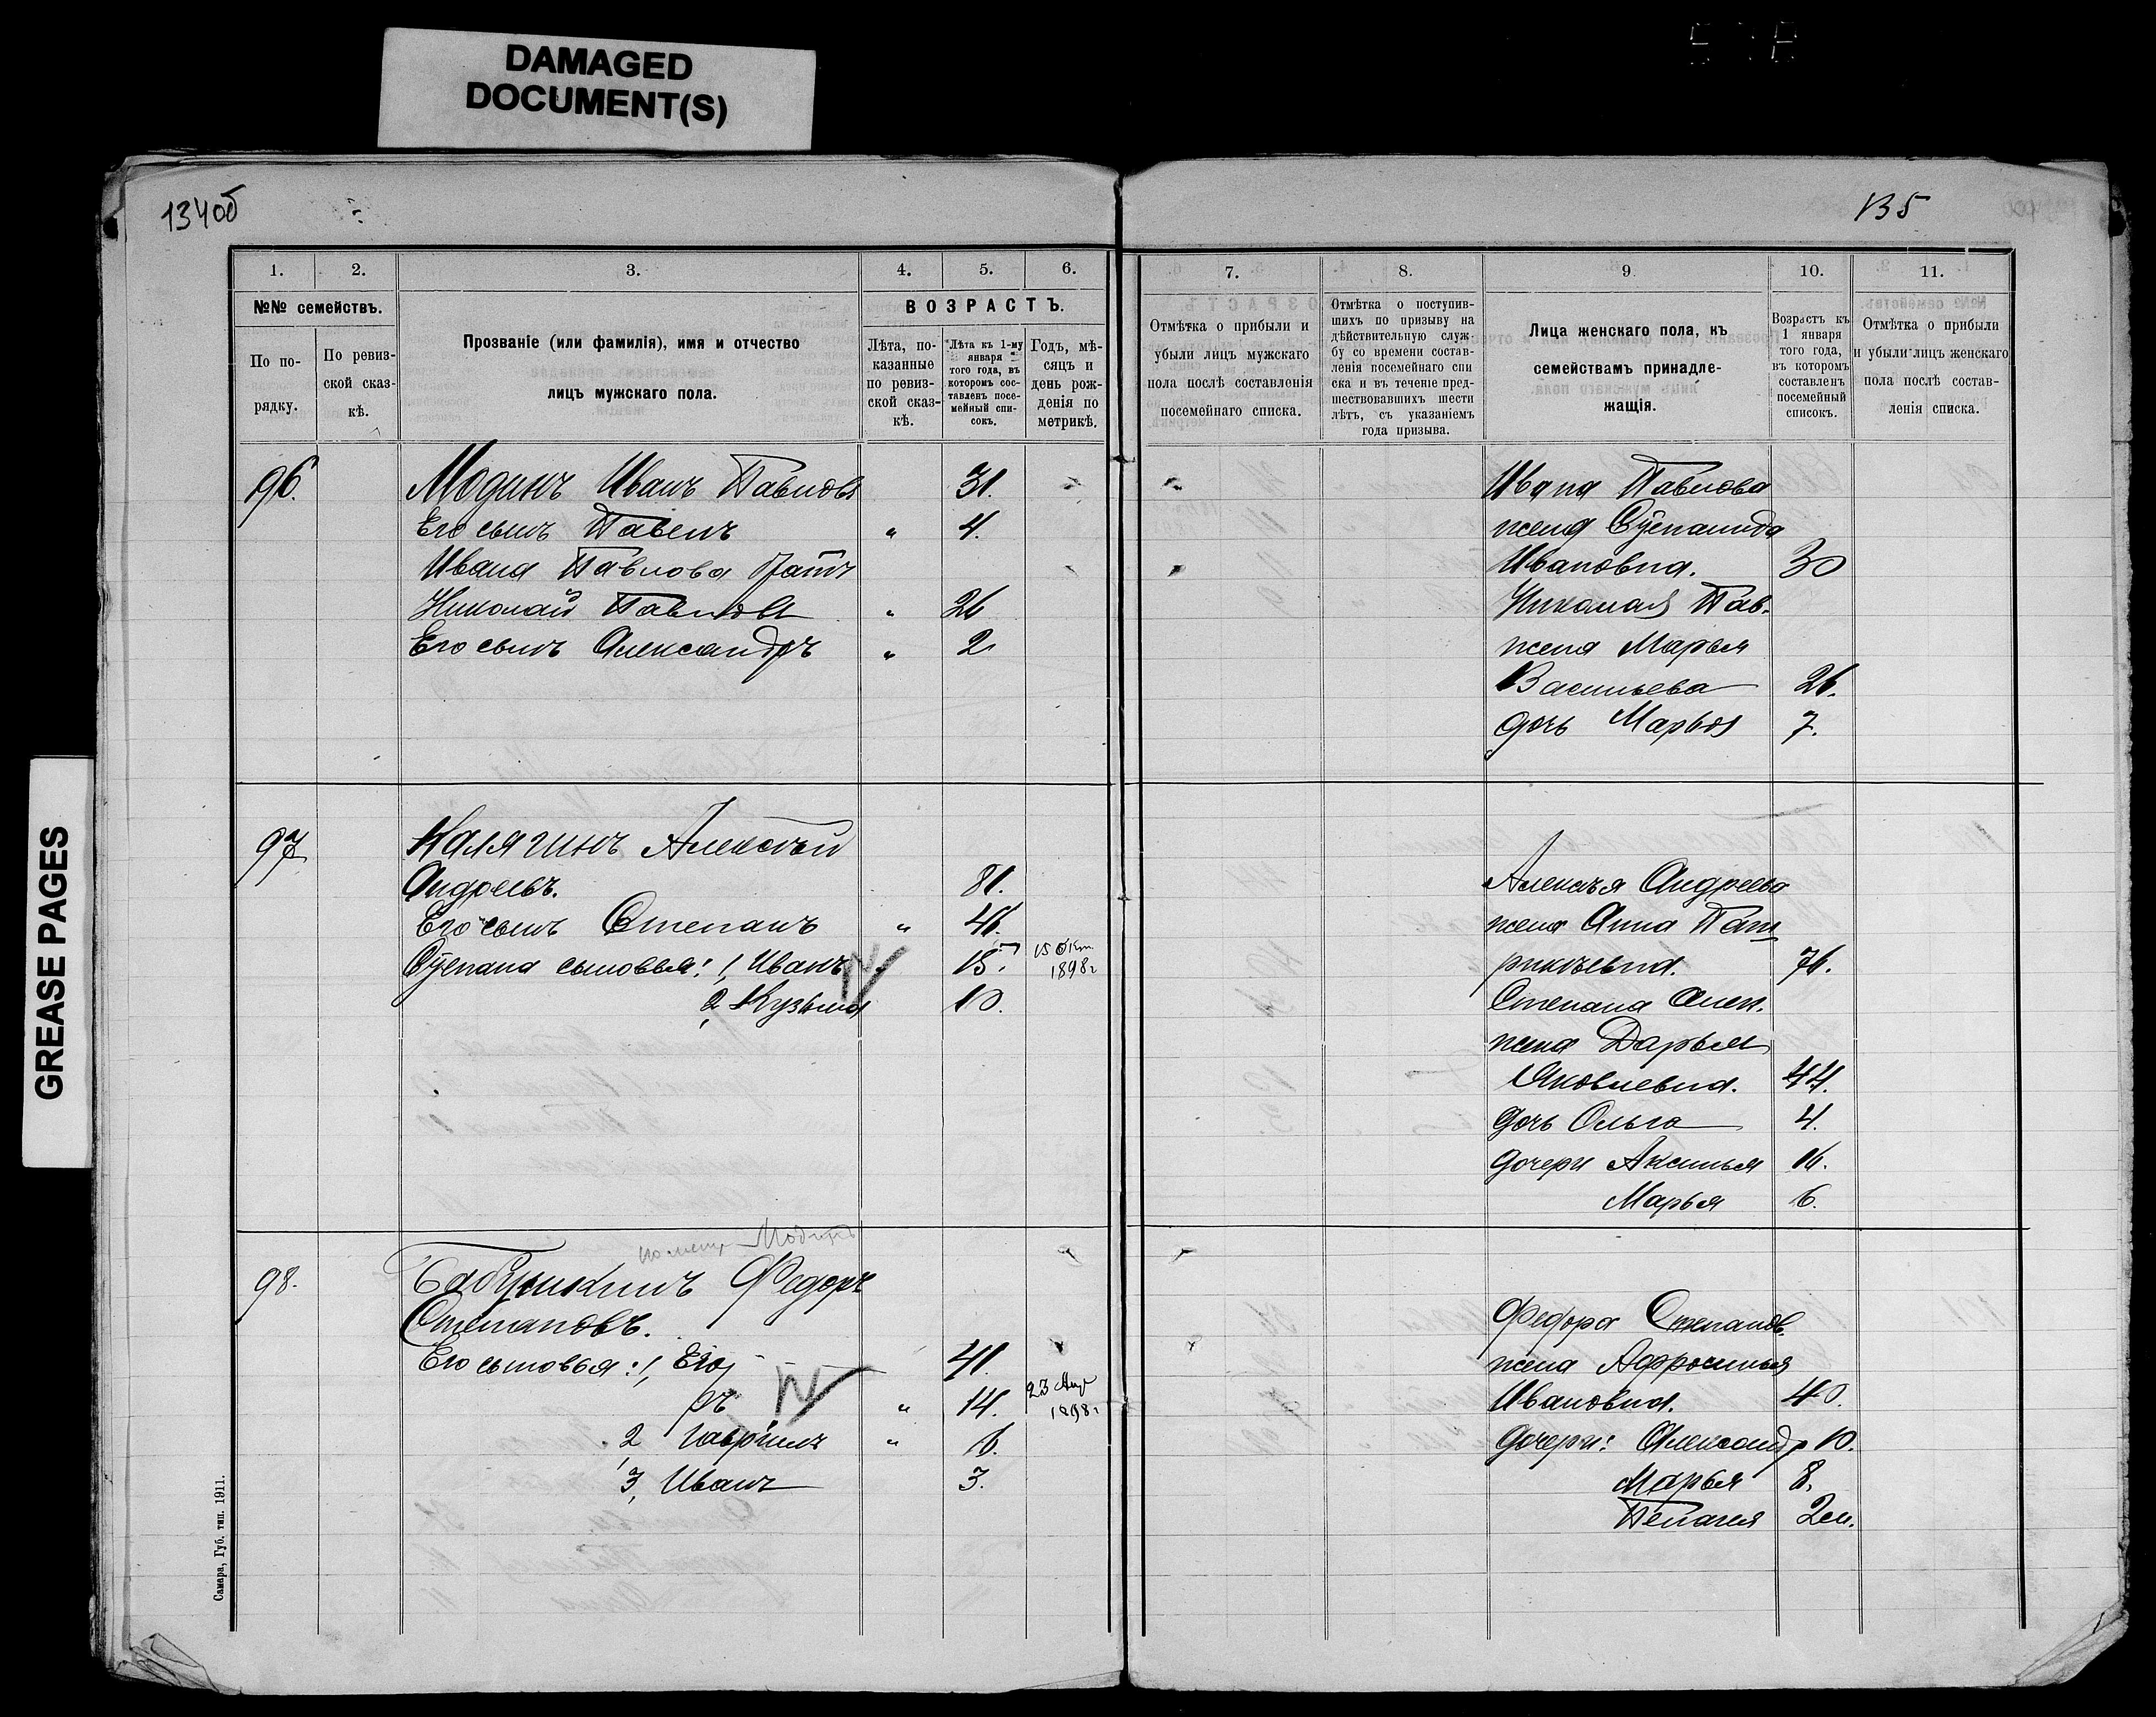 DAMAGED
DOCUMENT(S)
GREASE PAGES
134об
135
1.
2.
3.
4.
5.
6.
№№ семействъ.
По по-
рядку.
По ревиз-
ской сказ-
кѣ.
Прозваніе (или фамилія), имя и отчество
лицъ мужскаго пола.
ВОЗРАСТЪ.
Лѣта, по-
казанные
по ревиз-
ской сказ-
кѣ.
Лѣта къ 1-му
января
того года, въ
которомъ сос-
тавленъ посе-
мейный спи-
сокъ.
Годъ, мѣ-
сяцъ и
день рож-
денія по
метрикѣ.
7.
8.
9
10.
11.
Отмѣтка о прибыли и
убыли лицъ мужскаго
пола послѣ составленія
посемейнаго списка.
Отмѣтка о поступив-
шихъ по призыву на
дѣйствительную служ-
бу со времени состав-
ленія посемейнаго спи
ска и въ теченіе пред-
шествовавшихъ шести
лѣтъ, съ указаніемъ
года призыва.
Лица женскаго пола, къ
семействамъ принадле-
жащія.
Возрастъ къ
1 января
того года,
въ которомъ
составленъ
посемейный
списокъ.
Отмѣтка о прибыли
и убыли лицъ женскаго
пола послѣ состав-
ленія списка.
96. Модинъ Иванъ Павловъ 31.
Его сынъ Павелъ " 4.
Ивана Павлова братъ
Николай Павловъ " 26
Его сынъ Александръ " 2
Ивана Павлова
жена Степанида
Ивановна. 30
Николая Пав.
жена Марья
Васильева 26.
дочь Марья 7.
97 Калягинъ Алексѣй
Андреевъ. 81.
Его сынъ Степанъ " 46.
Степана сыновья: 1, Иванъ 15. 15 Окт.
1898г
2, Кузьма 10.
Алексѣя Андреева
жена Анна Пат
рикѣевна. 76.
Степана Алек.
жена Дарья
Яковлевна. 44.
дочь Ольга 4.
дочери Аксинья 16.
Марья 6.
Модинъ
98. Бабушкинъ Федоръ
Степановъ.
Его сыновья: 1, Его 41.
ръ " 14. 23 Апр
1898г
2, Гаврилъ " 6.
3, Иванъ 3.
Федора Степанов.
жена Афросинья
Ивановна. 40.
дочери: Александр 10.
Марья 8.
Пелагея 2м.
Самара, Губ. тип. 1911.